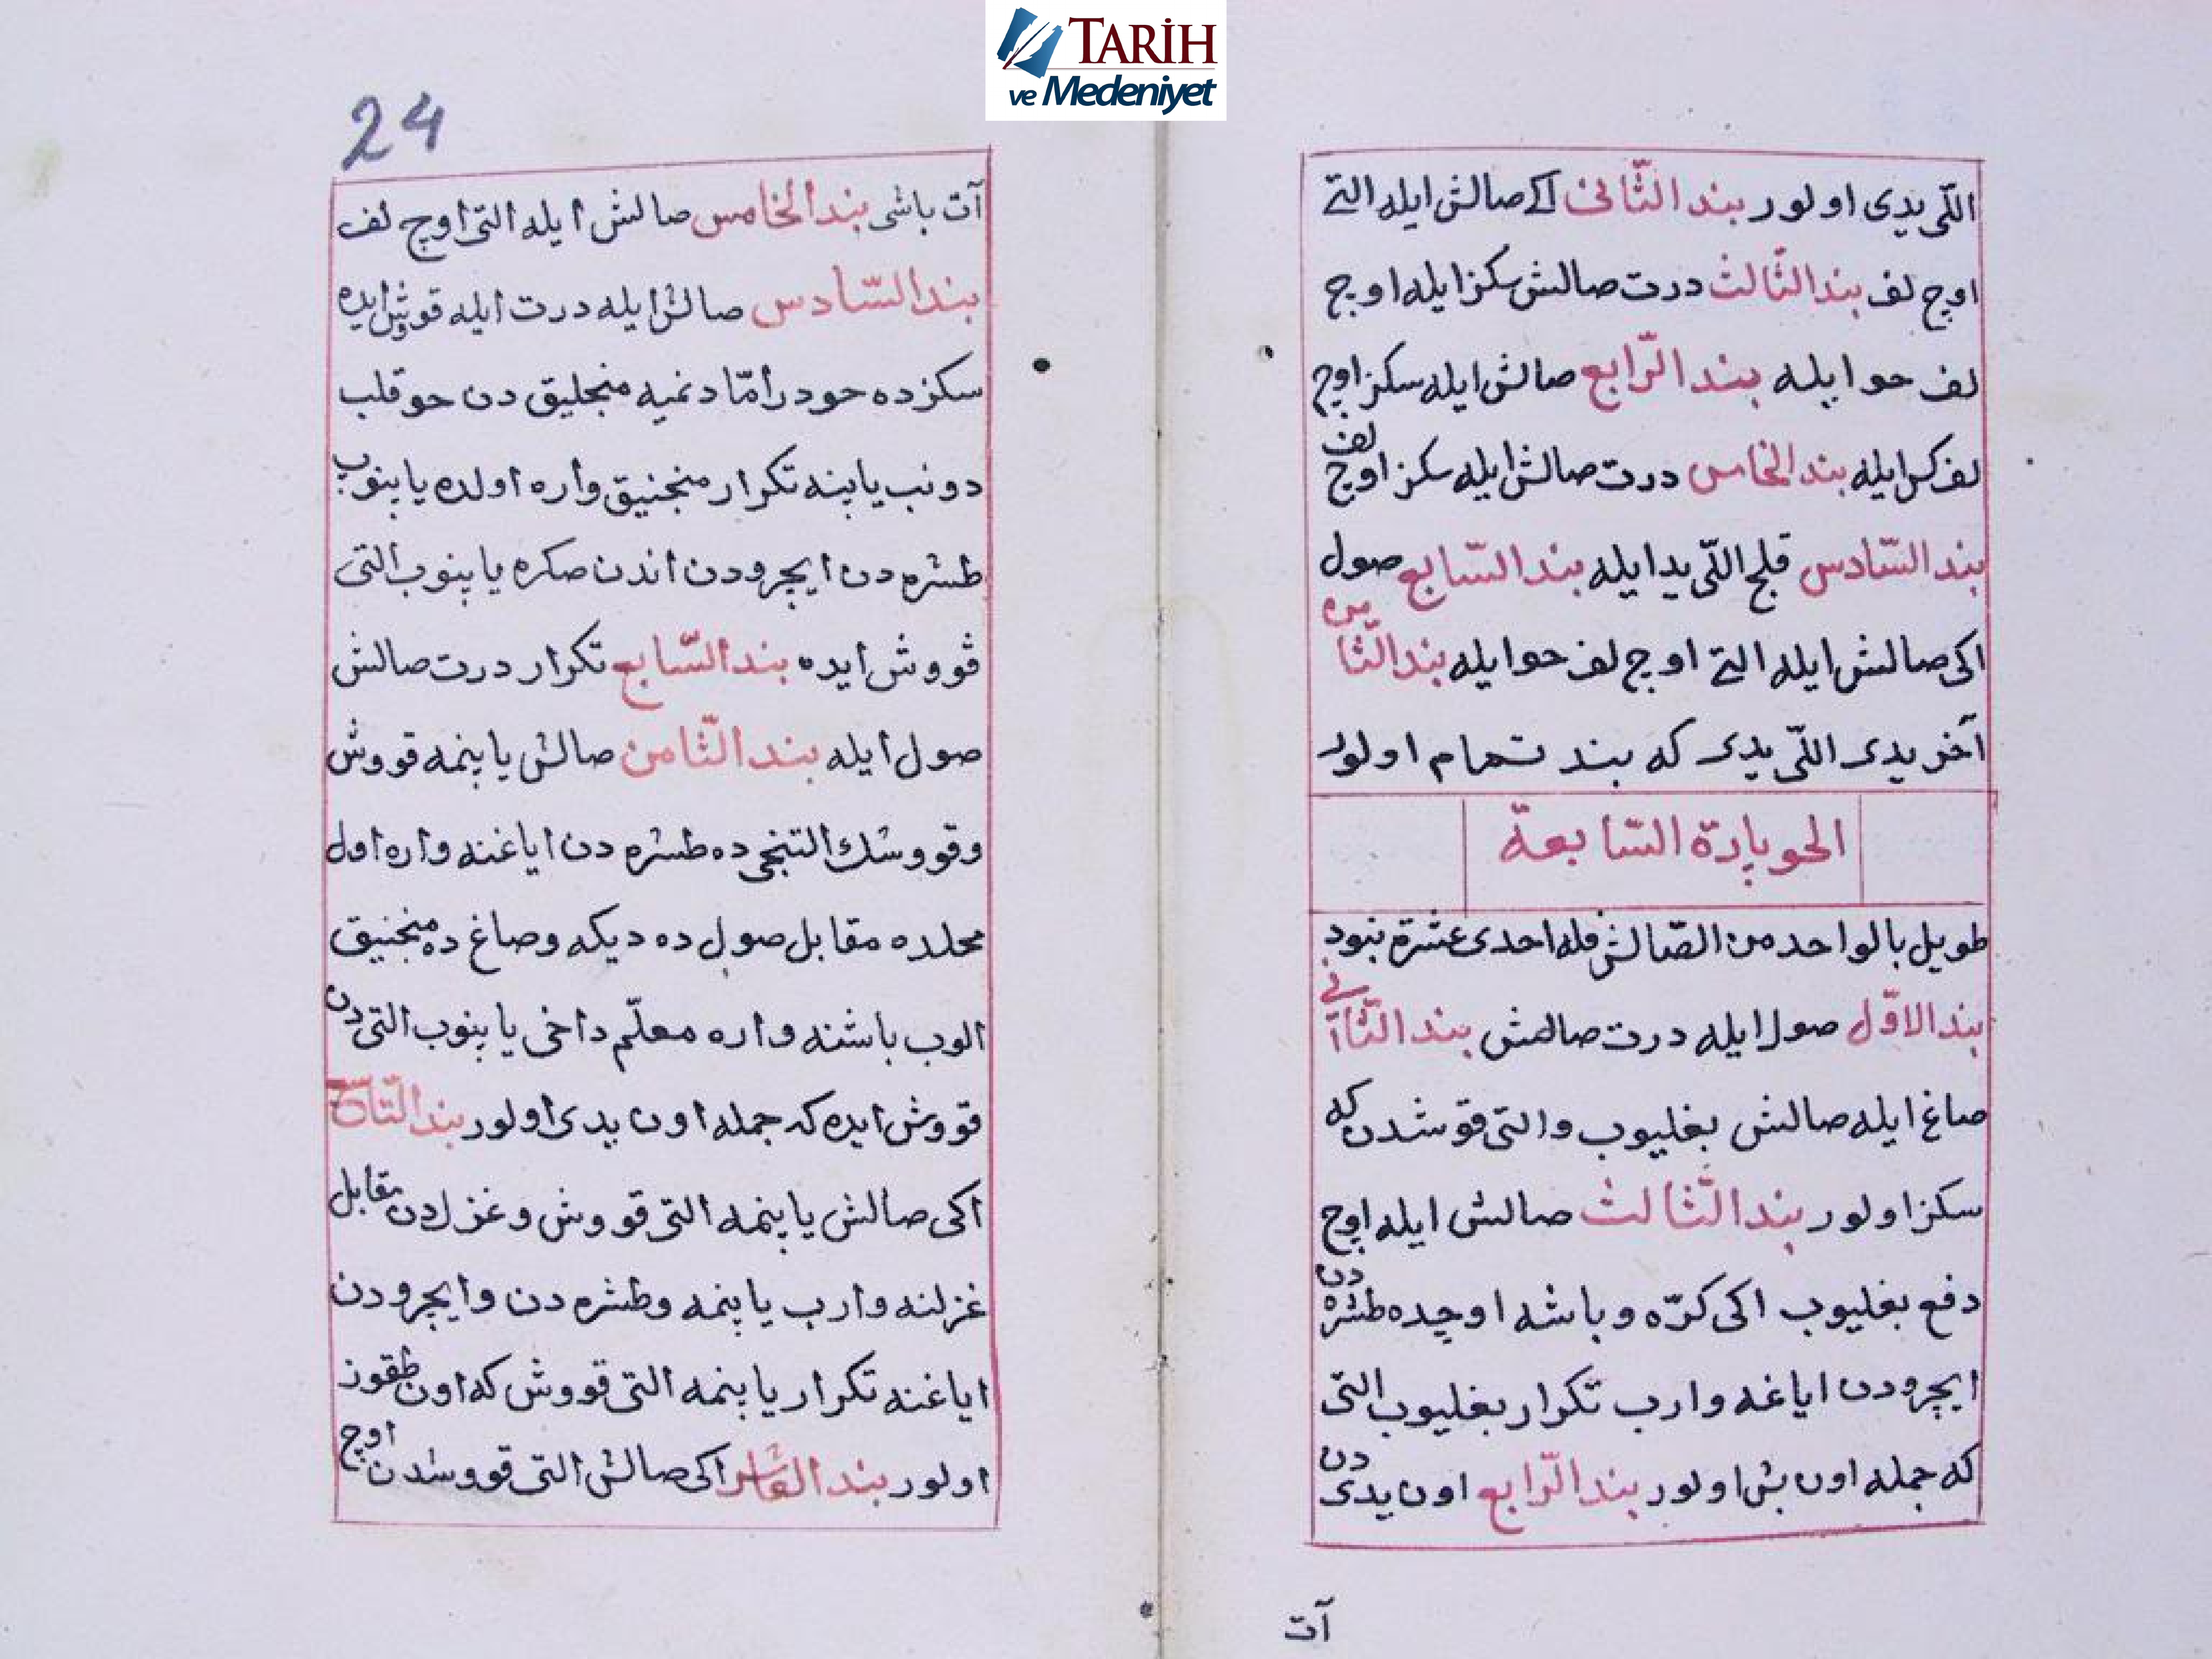 TARİH
ve Medeniyet
اللّی یدی اولور بند الثّانی اکی صالش ایله التی
اوچ لف بند الثّالث درت صالش سکز ایله اوچ
لف حو ایله بند الرّابع صالش ایله سکز اوچ
لف کر ایله بند الخامس درت صالش ایله سکز اوچ لف
بند السّادس قلج اللّی یدا یله بند السّابع صول
اکی صالش ایله التی اوچ لف حو ایله بند الثّامن
آخر یدی اللّی یدی که بند تمام اولور
الحوپارة السّابعة
طویل بالواحد من الصّالش فله احدی عشرة بنود
بند الاوّل صول ایله درت صالمش بند الثّانی
صاغ ایله صالش بغلیوب والتی قوشدن که
سکز اولور بند الثّالث صالش ایله اوچ
دفع بغلیوب اکی کرّه و باشه اوچده طشره دن
ایچرودن ایاغه وارب تکرار بغلیوب التی
که جمله اون بش اولور بند الرّابع اون یدی دن
آت
24
آت باشی بند الخامس صالش ایله التی اوچ لف
بند السّادس صالش ایله درت ایله قووش ایده
سکزده حودر أمّا دنمیه منجلیق دن حو قلب
دونب یاپنه تکرار منجنیق واره اولده یاپنوب
طشره دن ایچرودن اندن صکره یاپنوب التی
قووش ایده بند السّابع تکرار درت صالش
صول ایله بند الثّامن صالش یاپنمه قووش
وقووشك التنجی ده طشره دن ایاغنه واره اول
محلده مقابل صول ده دیکه وصاغ ده منجنیق
الوب باشنه واره معلّم داخی یاپنوب التی دن
قووش ایده که جمله اون یدی اولور بند التّاسع
اکی صالش یاپنمه التی قووش وغزلدن مقابل
غزلنه وارب یاپنمه وطشره دن وایچرودن
ایاغنه تکرار یاپنمه التی قووش که اون طقوز
اولور بند العاشر اکی صالش التی قووشدن اوچ